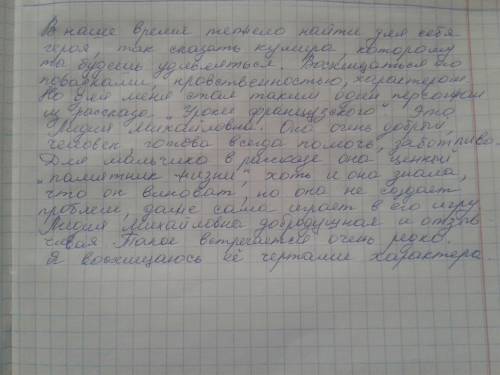 В наше время тяжело найти для себя
героя, так сказать кумира, которому
ты будешь удивляться. Восхищаться его
повадками, нравственностью, характером.
Но для меня стал таким один персонаж
из рассказа "Уроки французского". Это
Лидия Михайловна. Она очень добрый
человек, готова всегда помочь, заботлива.
Для мальчика в рассказе она ценный
"памятник жизни", хоть и она знала,
что он виноват, но она не создает
проблем, даже сама играет в его игру.
Лидия Михайловна добродушная и отзыв
чивая. Такое встречается очень редко.
Я восхищаюсь её чертами характера